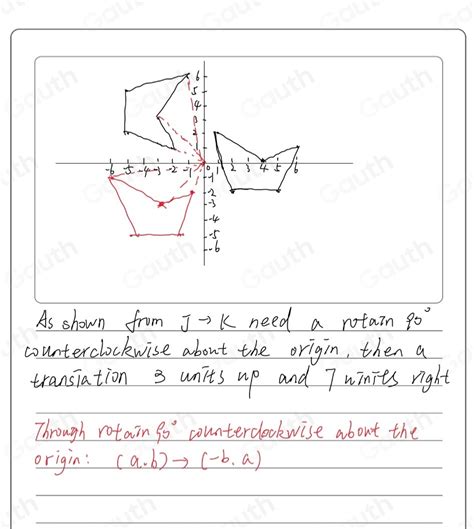 6
5
4
3
2
1
-6 -5 -4 -3 -2 -1 0 1 2 3 4 5 6
-1
-2
-3
-4
-5
-6
As shown from J → K need a rotain 90°
counterclockwise about the origin, then a
transiation 3 units up and 7 uinits right
Through rotain 90° counterclockwise about the
origin: (a.b) → (-b.a)
Gauth